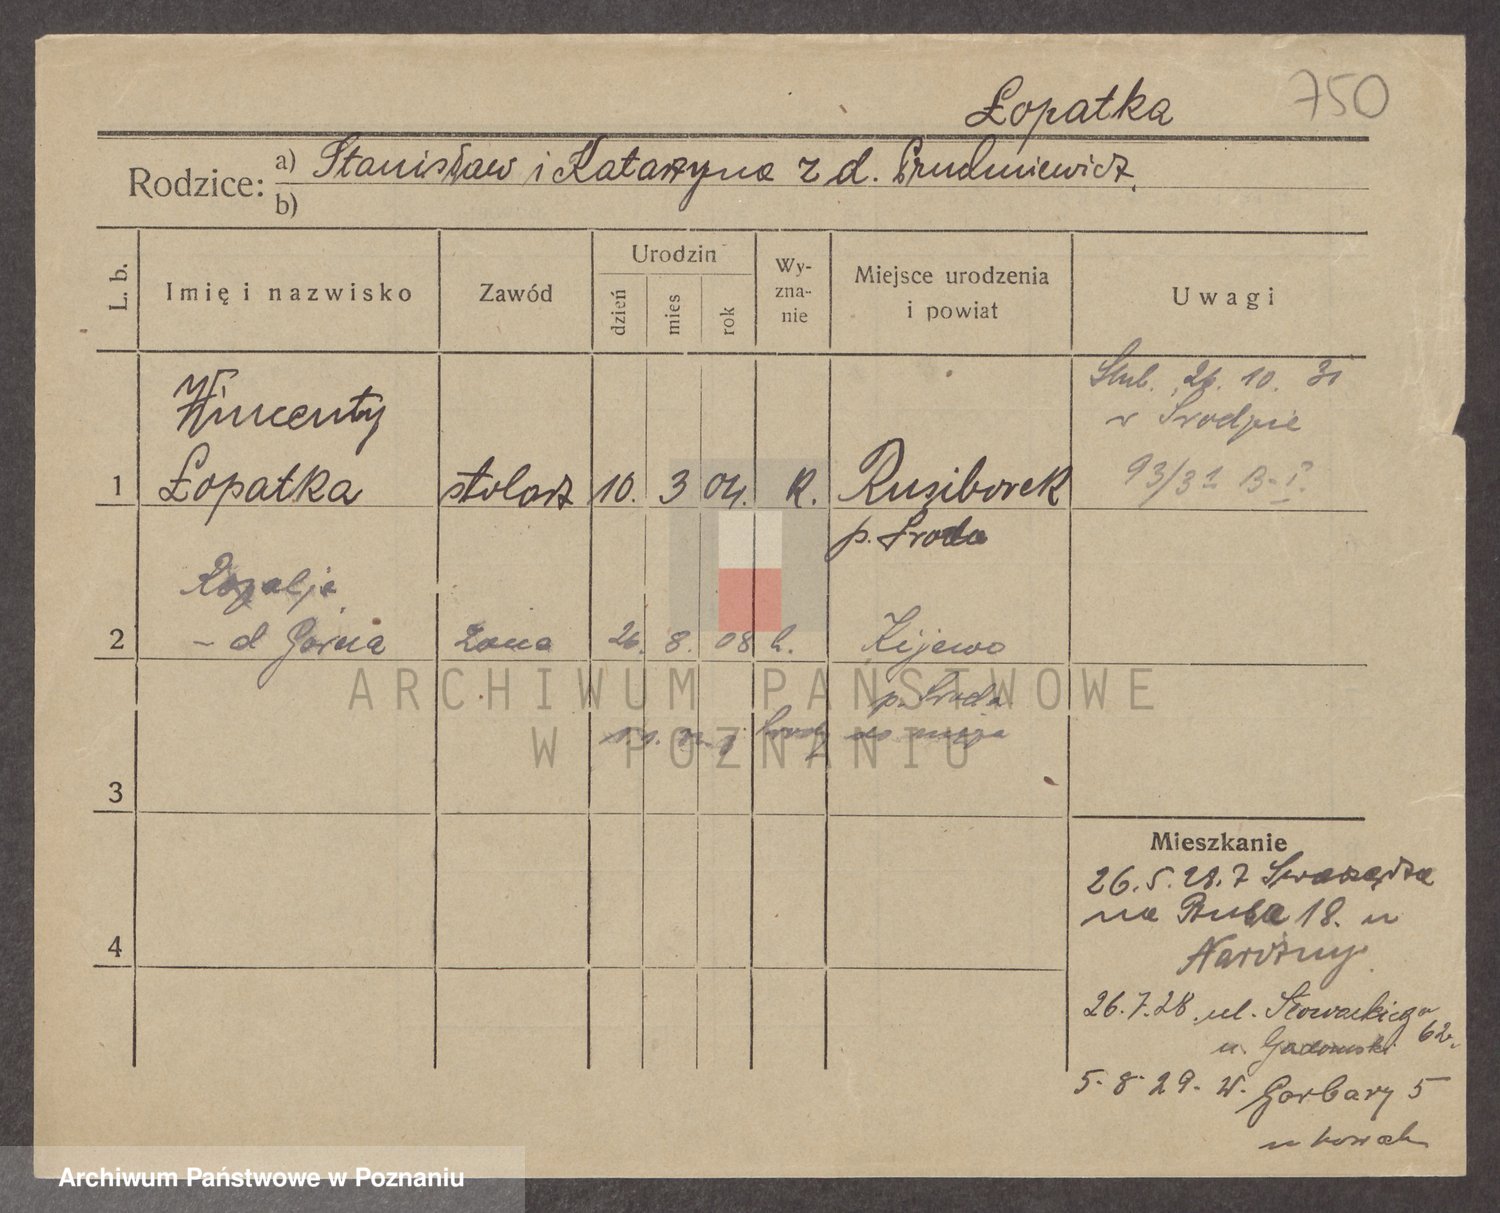 Łopatka 750
Rodzice: a) Stanisław i Katarzyna z d. Prudniewicz.
b)
L. b. Imię i nazwisko Zawód Urodzin dzień mies rok Wyznanie Miejsce urodzenia i powiat Uwagi
Ślub. 26. 10. 31
w Środzie
93/31 B-I.
Wincenty
1 Łopatka stolarz 10. 3 04. R. Rusiborek
p. Środa
Rozalja
2 - d Górna żona 26. 8. 08 k. Kijewo
p. Środa
Środy do męża
3
4
Mieszkanie
26.5.28. z Swarzędza
na 18. u
26.7.28 ul. Słowackiego
u. Gadomski 62.
5-8-29. W. Garbary 5
u
ARCHIWUM PAŃSTWOWE
W POZNANIU
Archiwum Państwowe w Poznaniu